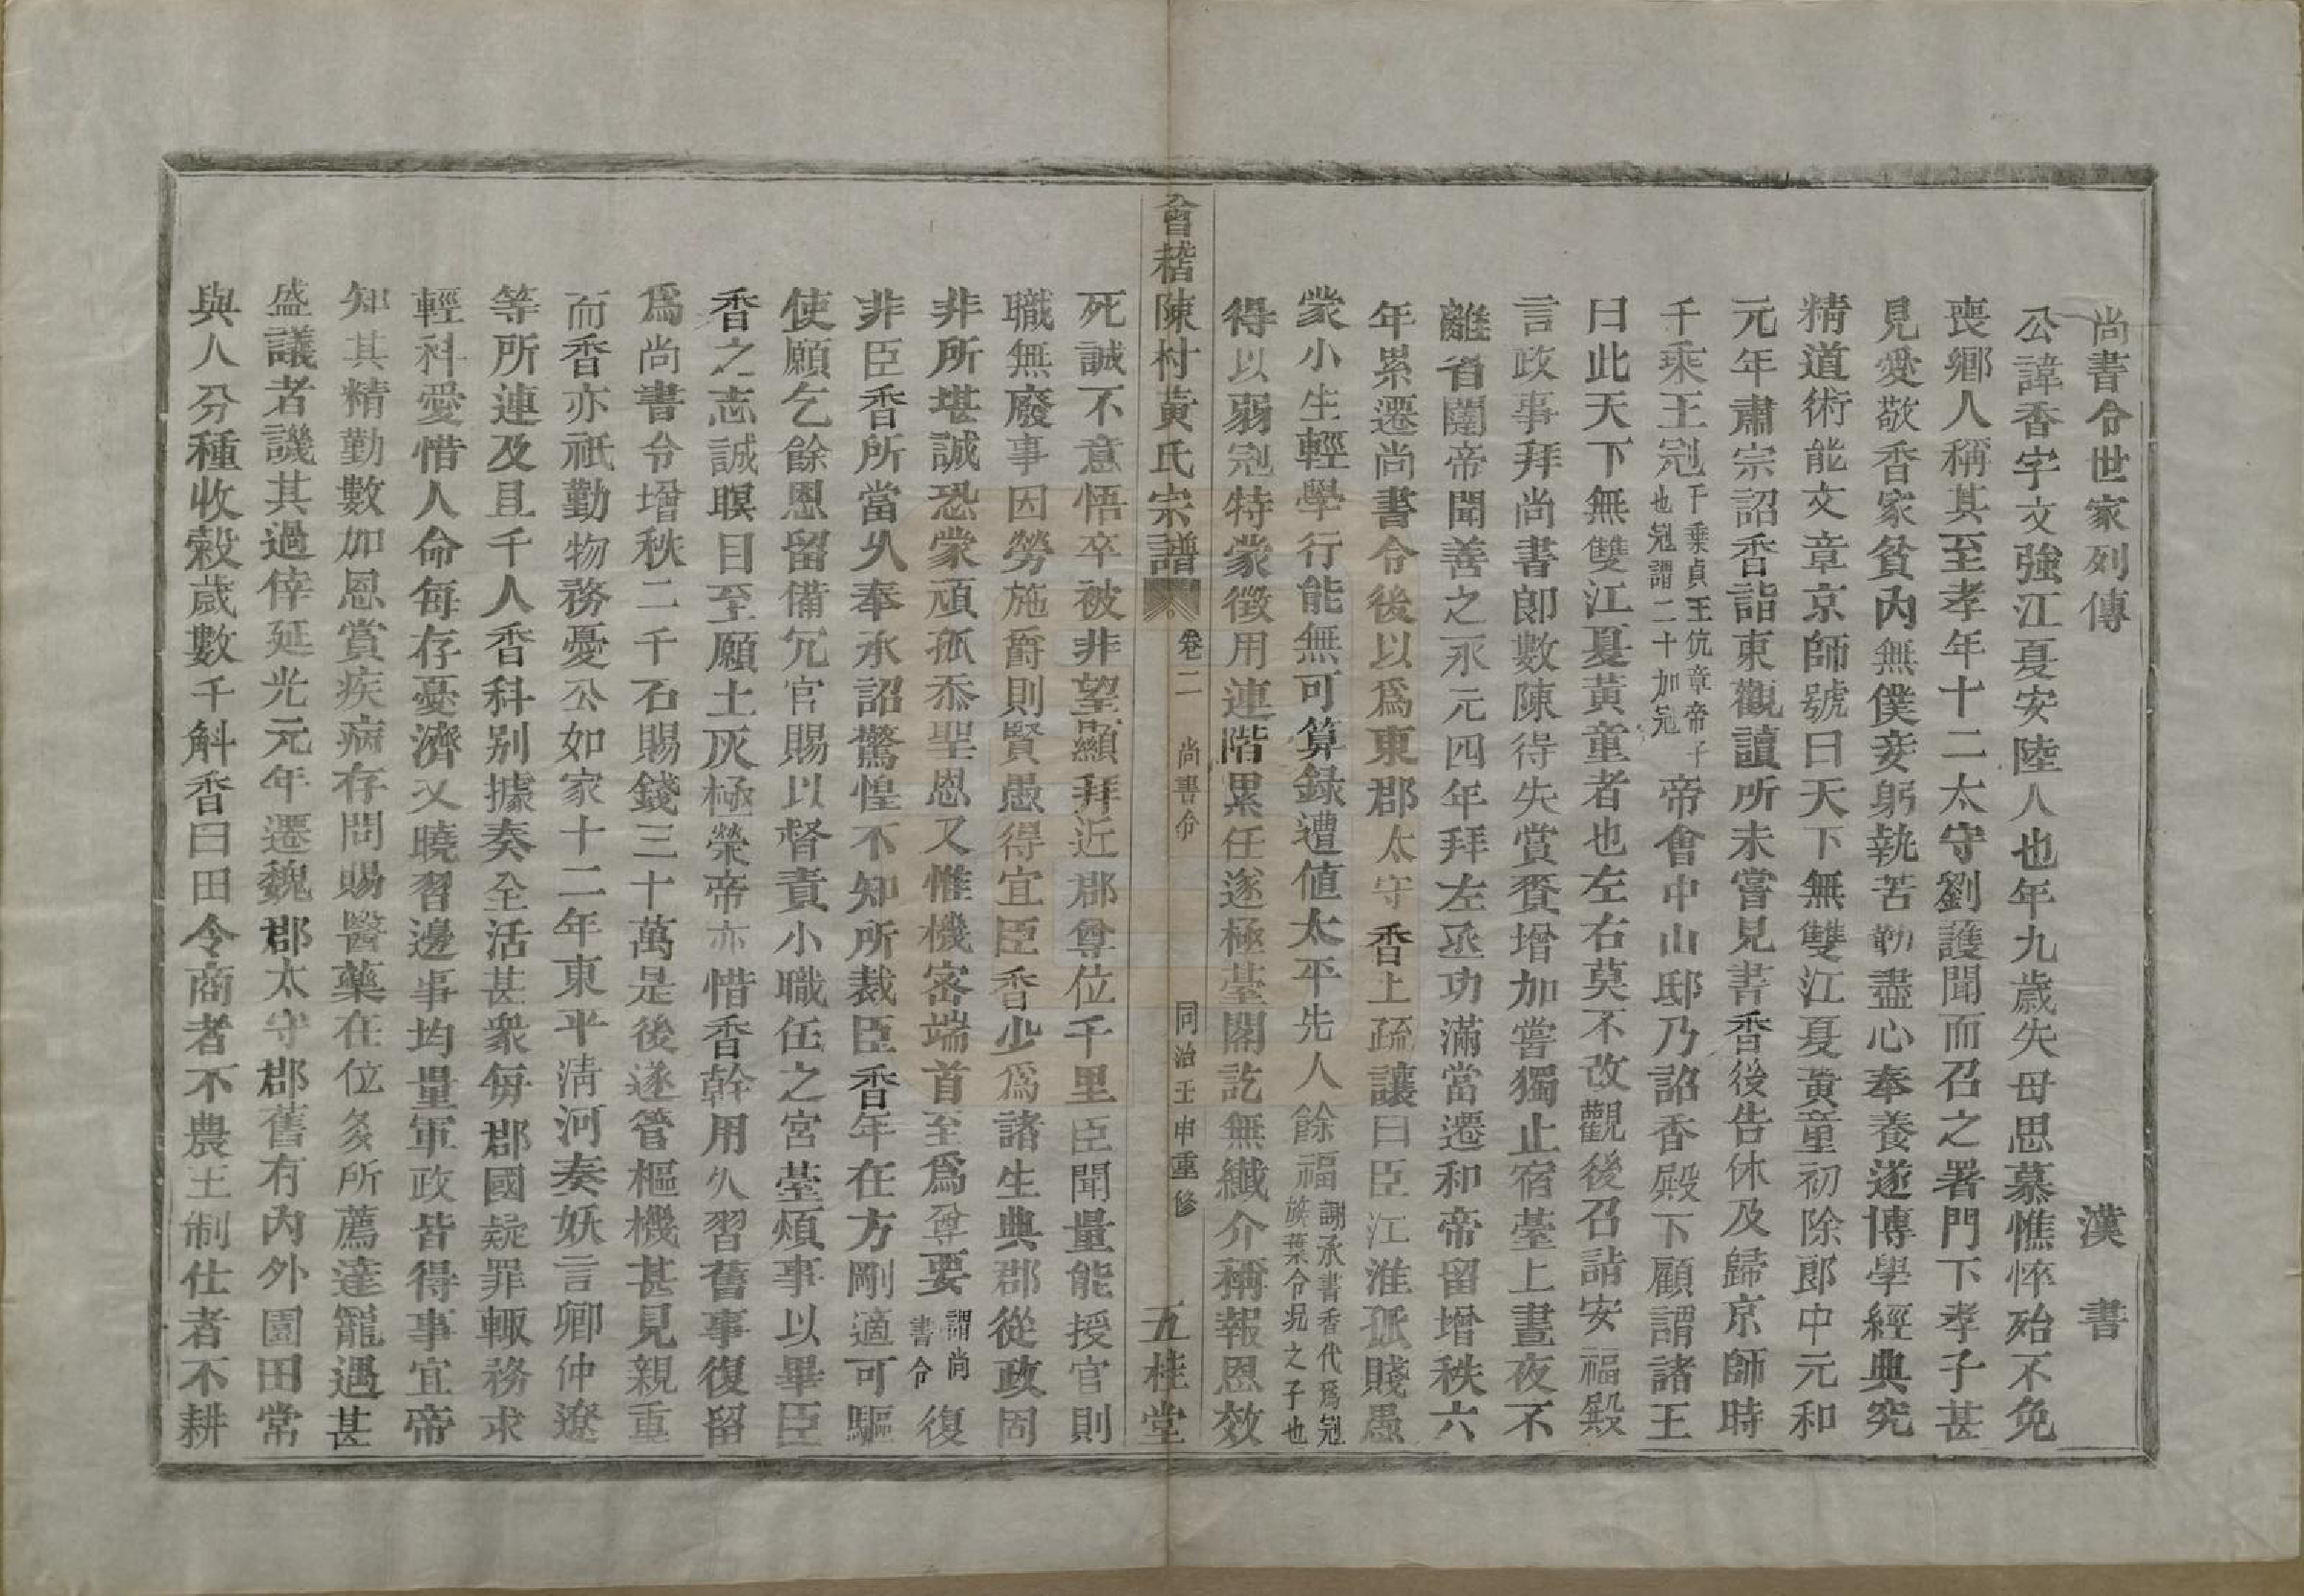 尚書令世家列傳　漢書
公諱香字文強江夏安陸人也年九歲失母思慕憔悴殆不免
喪鄉人稱其至孝年十二太守劉護聞而召之署門下孝子甚
見愛敬香家貧內無僕妾躬執苦勤盡心奉養遂博學經典究
精道術能文章京師號曰天下無雙江夏黃童初除郎中元和
元年肅宗詔香詣東觀讀所未嘗見書香後告休及歸京師時
千乘王冠千乘貞王伉章帝子也冠謂二十加冠帝會中山邸乃詔香殿下顧謂諸王
曰此天下無雙江夏黃童者也左右莫不改觀後召詣安福殿
言政事拜尚書郎數陳得失賞賚增加嘗獨止宿臺上晝夜不
離省闥帝聞善之永元四年拜左丞功滿當遷和帝留增秩六
年累遷尚書令後以爲東郡太守香上疏讓曰臣江淮孤賤愚
蒙小生輕學行能無可算録遭值太平先人餘福謝承書香代爲冠族葉令況之子也
得以弱冠特蒙徵用連階累任遂極臺閣訖無纖介稱報恩效
會稽陳村黃氏宗譜　卷二　尚書令　同治壬申重修　五桂堂
死誠不意悟卒被非望顯拜近郡尊位千里臣聞量能授官則
職無廢事因勞施爵則賢愚得宜臣香少爲諸生典郡從政固
非所堪誠恐蒙頑孤忝聖恩又惟機密端首至爲尊要謂尚書令復
非臣香所當久奉承詔驚惶不知所裁臣香年在方剛適可驅
使願乞餘恩留備冗官賜以督責小職任之宮臺煩事以畢臣
香之志誠瞑目至願土灰極榮帝亦惜香幹用久習舊事復留
爲尚書令增秩二千石賜錢三十萬是後遂管樞機甚見親重
而香亦祇勤物務憂公如家十二年東平淸河奏妖言卿仲遼
等所連及且千人香科別據奏全活甚衆每郡國疑罪輒務求
輕科愛惜人命每存憂濟又曉習邊事均量軍政皆得事宜帝
知其精勤數加恩賞疾病存問賜醫藥在位多所薦達寵遇甚
盛議者譏其過倖延光元年遷魏郡太守郡舊有內外園田常
與人分種收穀歲數千斛香曰田令商者不農王制仕者不耕